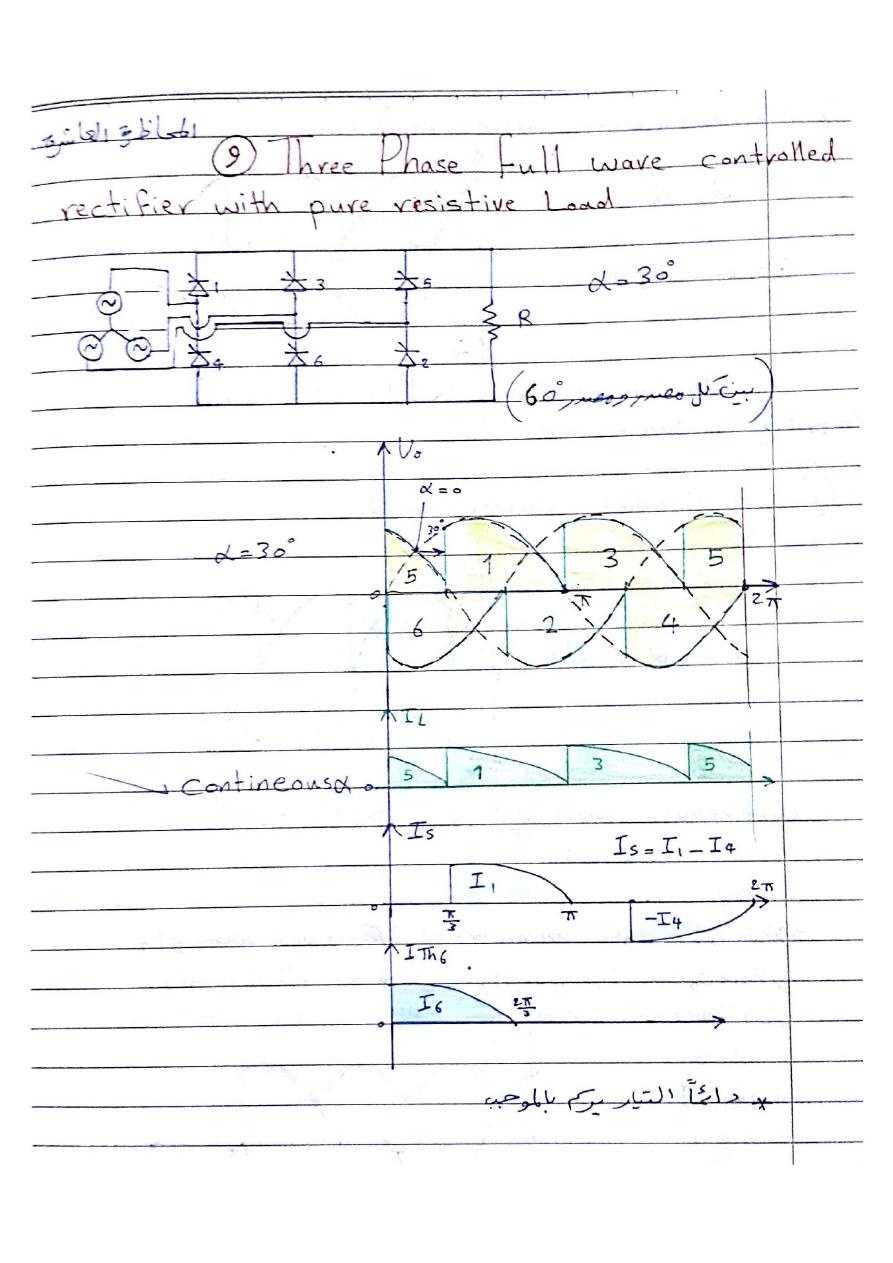 المحاضرة العاشرة
⑨ Three Phase full wave controlled
rectifier with pure resistive Load
1 3 5
α=30°
R
4 6 2
(بين كل مصدر ومصدر 60°)
Vo
α=0
α=30°
30°
1 3 5
5
0 π 2π
6 2 4
IL
Contineous α 0
5 1 3 5
Is
Is = I1 - I4
I1
2π
0 π/3 π
-I4
ITh6
I6 2π/3
0
* دائماً التيار يرسم بالموجب